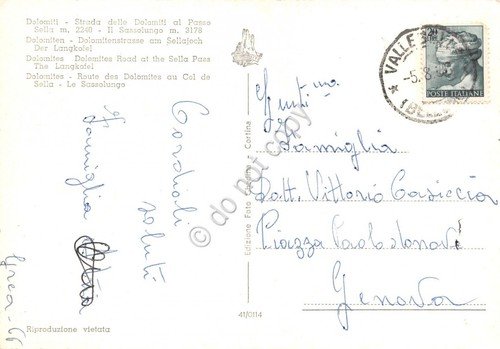 Dolomiti - Strada delle Dolomiti al Passo
Sella m. 2240 - Il Sassolungo m. 3178
Dolomiten - Dolomitenstrasse am Sellajoch
Der Langkofel
Dolomites Dolomites Road at the Sella Pass
The Langkofel
Dolomites - Route des Dolomites au Col de
Sella - Le Sassolungo
Cordiali
saluti
Famiglia
Riproduzione vietata
Edizione Foto Ghedina - Cortina
41/0114
VALLE
-5.8
POSTE ITALIANE
Gent.ma
Famiglia
Dott. Vittorio Casiccia
Piazza Paolo da Novi
Genova
do not copy